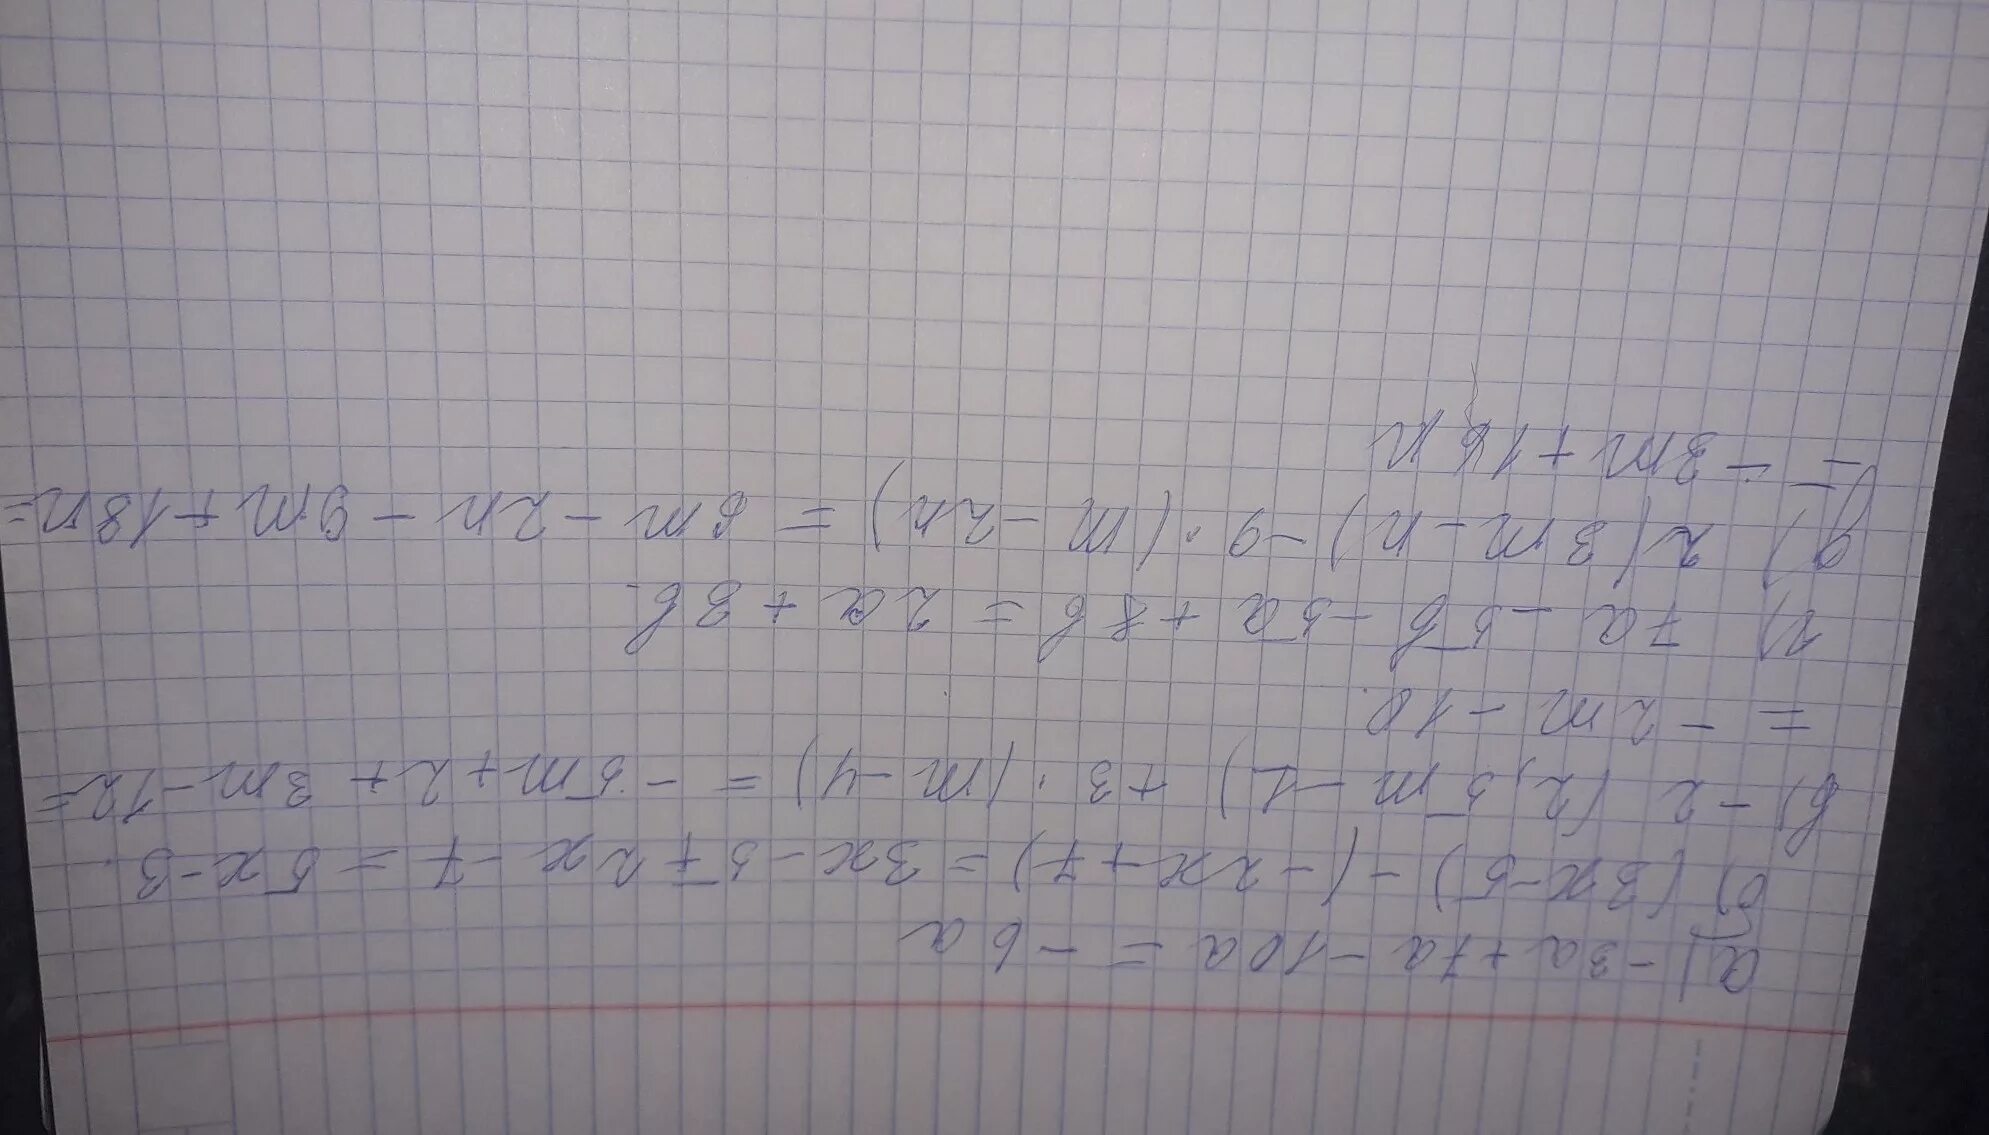 а) -3a+7a-10a=-6a
б) (3x-5)-(-2x+7)=3x-5+2x-7=5x-3.
в) -2(2,5m-1)+3·(m-4)=-5m+2+3m-12=
=-2m-10.
г) 7a-5b-5a+8b=2a+3b.
д) 2(3m-n)-9·(m-2n)=6m-2n-9m+18n=
=-3m+16n